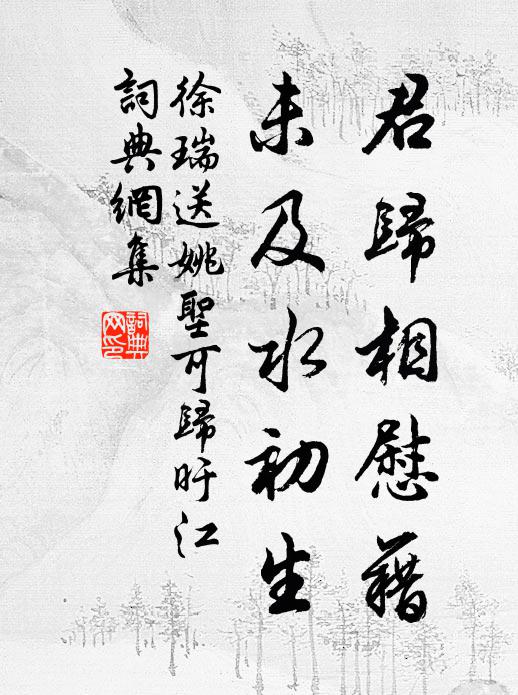 君歸相慰藉
未及水初生
徐瑞送姚聖可歸旴江
詞典網集
詞典網印